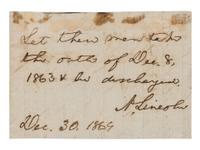 Let these men take
the oath of Dec. 8.
1863 & be discharged.
A. Lincoln
Dec. 30. 1864